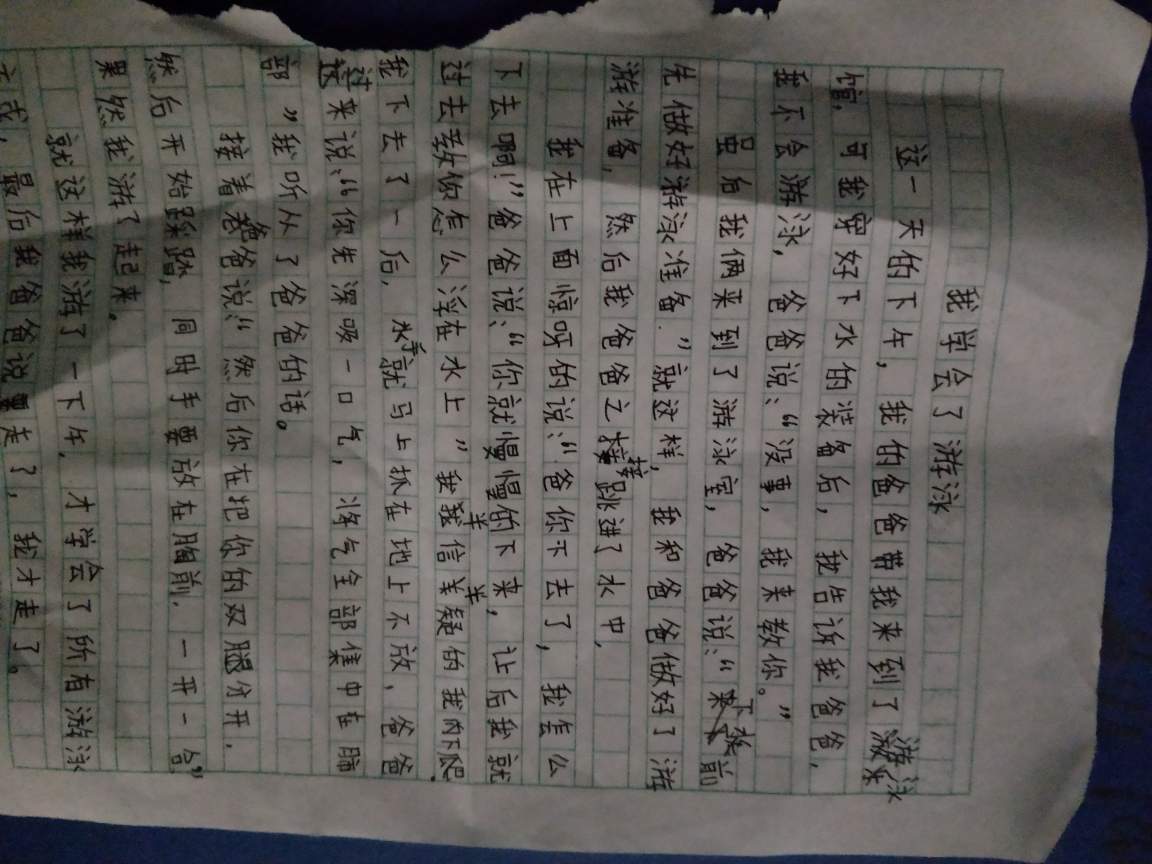 我学会了游泳
这一天的下午，我的爸爸带我来到了游泳
馆，可我穿好下水的装备后，我告诉我爸爸，
我不会游泳，爸爸说：“没事，我来教你。”
虽后我俩来到了游泳室，爸爸说：“下水前
先做好游泳准备.”就这样，我和爸爸做好了游
游准备，然后我爸爸之接跳进了水中，
我在上面惊呀的说：“爸你下去了，我怎么
下去啊！”爸爸说：“你就慢慢的下来，让后我就
过去教你怎么浮在水上”我半信半疑的
我下去了一后，就马上抓在地上不放，爸爸
过来说：“你先深吸一口气，将气全部集中在肺
部”我听从了爸爸的话。
接着爸爸说：“然后你在把你的双腿分开.
然后开始踩踏，同时手要放在胸前.一开一合”
果然我游了起来。
就这样我游了一下午，才学会了所有游泳
最后我爸爸说要走了，我才走了。